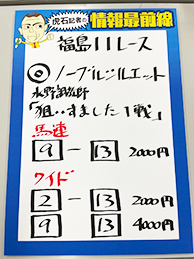 虎石記者の
情報最前線
福島11レース
◎ノーブルシルエット
「狙いすました1戦」
馬連
9 － 13 2000円
ワイド
2 － 13 2000円
9 － 13 4000円